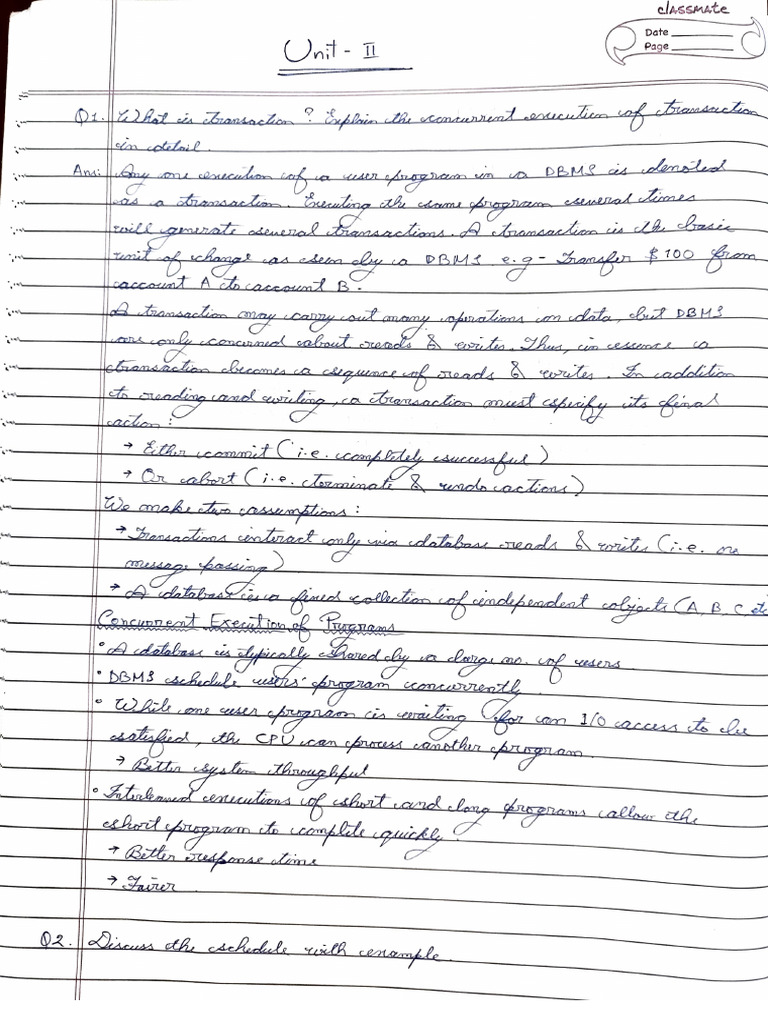 classmate
Date
Page
Unit - II
Q1. What is transaction? Explain the concurrent execution of transaction
in detail.
Ans: Any one execution of a user program in a DBMS is denoted
as a transaction. Executing the same program several times
will generate several transactions. A transaction is the basic
unit of change as seen by a DBMS. e.g - Transfer $100 from
account A to account B.
A transaction may carry out many operations on data, but DBMS
are only concerned about reads & writes. Thus, in essence a
transaction becomes a sequence of reads & writes. In addition
to reading and writing, a transaction must specify its final
action:
→ Either commit (i.e. completely successful)
→ Or abort (i.e. terminate & undo actions)
We make two assumptions:
→ Transactions interact only via database reads & writes (i.e. no
message passing)
→ A database is a fixed collection of independent objects (A, B, C, etc
Concurrent Execution of Programs
• A database is typically shared by a large no. of users.
• DBMS schedule users' program concurrently
• While one user program is waiting for an I/O access to be
satisfied, the CPU can process another program.
→ Better system throughput
• Interleaved executions of short and long programs allow the
short program to complete quickly.
→ Better response time
→ Fairer
Q2. Discuss the schedule with example.